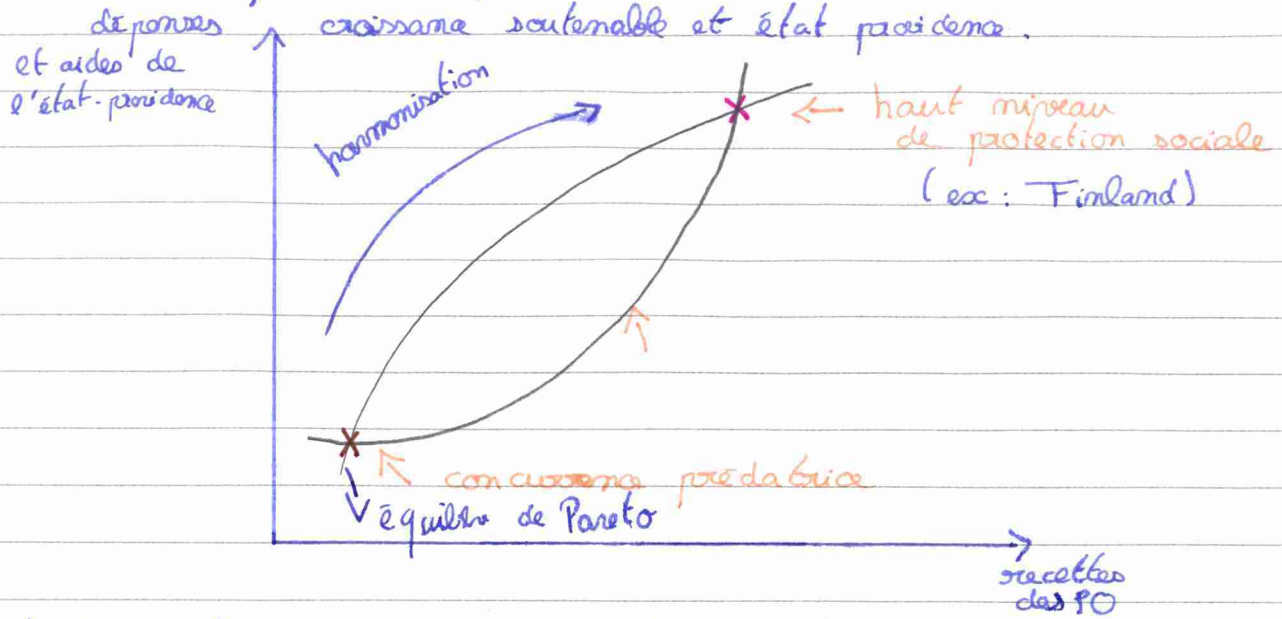 dépenses
et aides de
l'état-providence
croissance soutenable et état providence.
harmonisation
← haut niveau
de protection sociale
(ex : Finland)
concurrence prédatrice
équilibre de Pareto
recettes
des PO